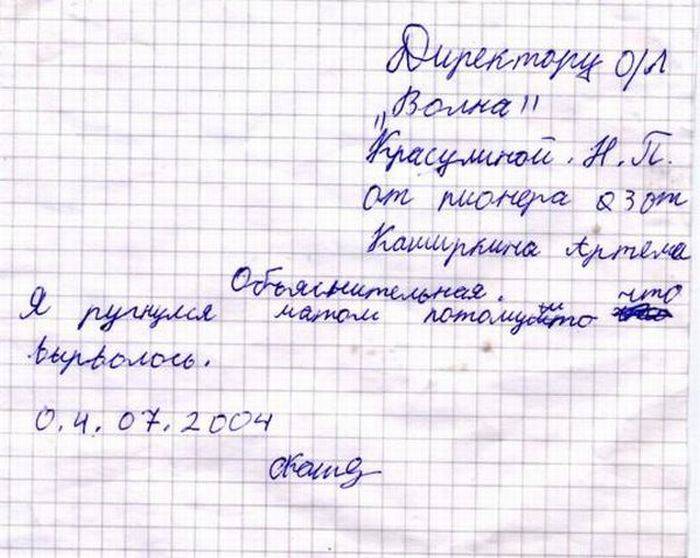 Директору о/л
„Волна"
Красулиной. Н. П.
от пионера 23 от
Каширкина Артема
Объяснительная.
Я ругнулся матом потомушто что
вырволось.
0.4.07.2004